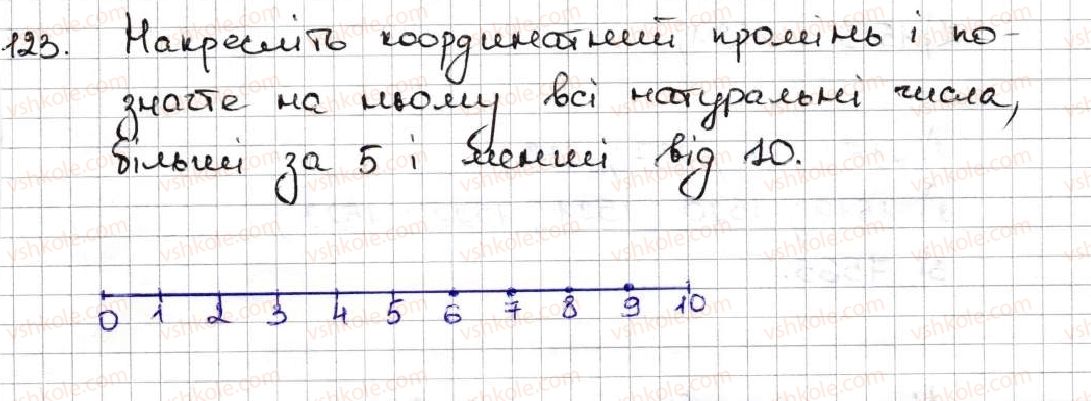 123. Накресліть координатний промінь і по-
значте на ньому всі натуральні числа,
більші за 5 і менші від 10.
0 1 2 3 4 5 6 7 8 9 10